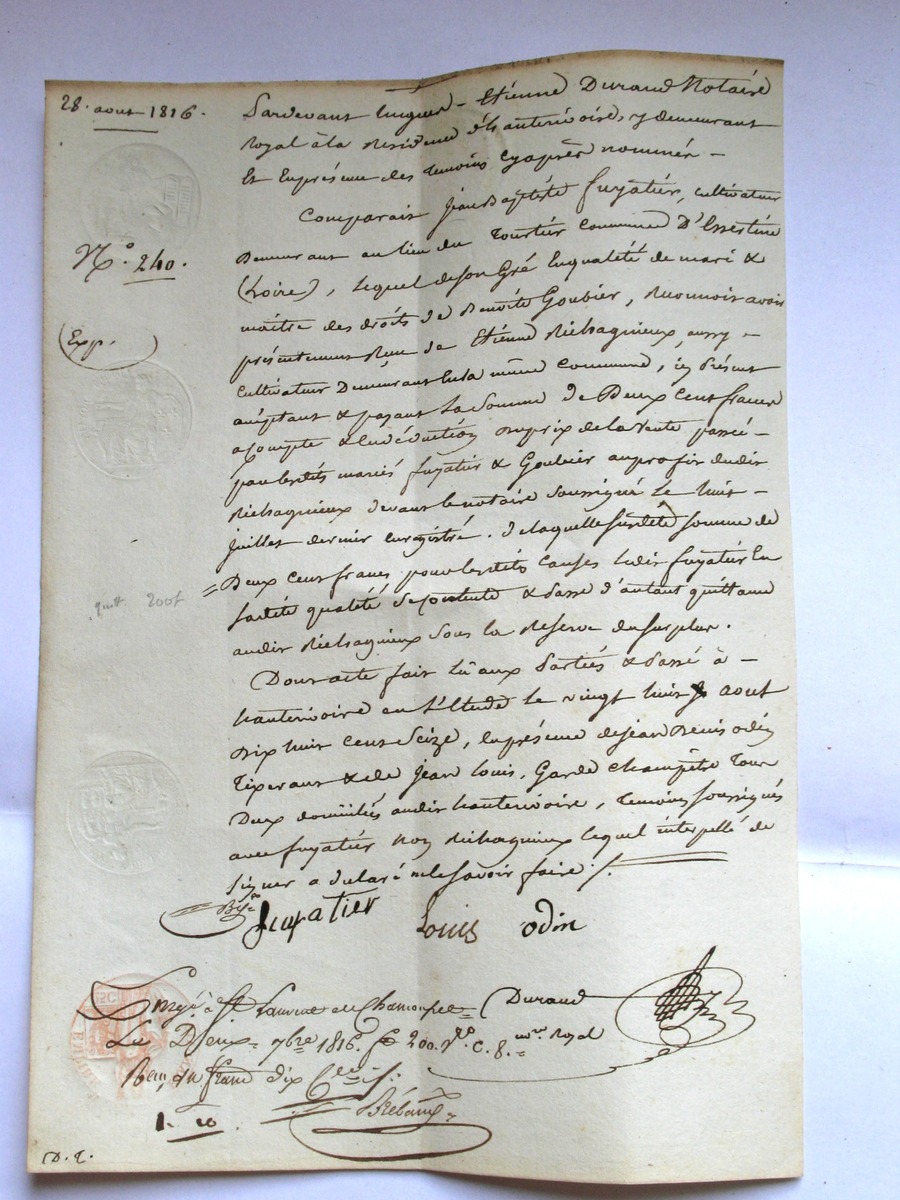 28. aout 1816.
N.o 240.
Exp.
quit. 200f
Pardevant Etiénne Durand Notaire
Royal à la Residence d'hauterivoire, y demeurant
Et En présence des temoins Cyaprès nommés –
Comparait Jean Baptiste fuyatier, cultivateur
Demeurant au lieu du Tourtier Commune D'Essertine
(Loire), Lequel de son Gré En qualité de mari &
maitre des droits de Benoite Goubier, Reconnoit avoir
présentement Reçu de Etienne Richagnieux, aussy –
Cultivateur Demeurant En la même Commune, icy présent
acceptant & payant La somme de Deux Cent francs
acompte & En déduction du prix de la vente passée –
par lesdits mariés fuyatier & Goubier au profit dudit
Richagnieux devant le notaire soussigné Le huit –
juillet dernier enregistré. de laquelle susdite somme de
= Deux cent francs pour lesdites causes ledit fuyatier En
sadite qualité se contente & passe d'autant quittance
audit Richagnieux sous la Reserve du surplus.
Dont acte fait lû aux parties & passé à –
hauterivoire en L'Etude le vingt huit aout
Dix huit cent seize, En présence de jean Denis odin
Tixerant & de Jean Louis, Garde champêtre Tous
Deux domiciliés audit hauterivoire, temoins soussignés
avec fuyatier non Richagnieux lequel interpellé de
signer a déclaré ne le savoir faire ./.
fuyatier
Louis odin
Durand
nore Royal
Enregé à St Laurent de Chamousset
Le Deux 7bre 1816. fo 200. Vo. C. 8.
Reçu un franc dix Cmes
1. 10
D. 2.